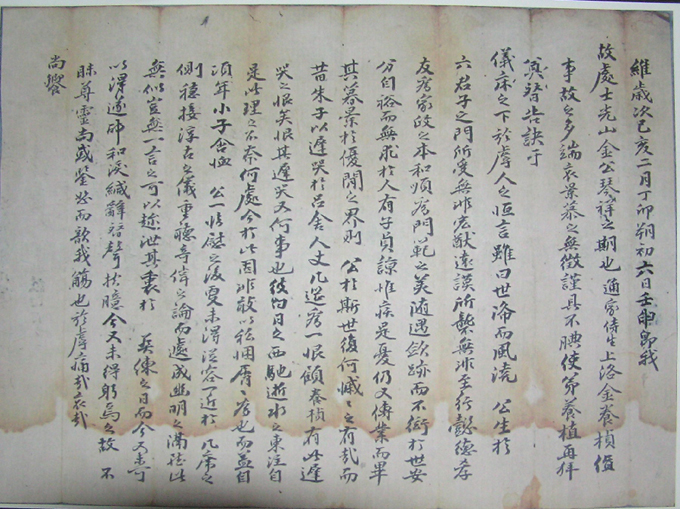 維歲次己亥二月丁卯朔初六日壬申卽我
故處士光山金公琴祥之期也通家侍生上洛金養楨值
事故之多端哀景慕之無徵謹具不腆使弟養植再拜
奠替告訣于
儀床之下於虖人之恒言雖曰世降而風澆 公生於
六君子之門所受無非宏猷遠謨所襲無非至行懿德孝
友爲家政之本和順爲門範之美隨遇斂跡而不衒於世安
分自裕而無求於人有子貞諒惟疾是憂仍又傳業而畢
其暮景於優閒之界則 公於斯世復何慼之有哉而
昔朱子以遲哭於呂舍人丈几筵爲一恨顧養楨有此遲
哭之恨矣恨其遲哭又何事也彼白日之西馳逝水之東注自
是此理之不奈何處今於此固非敢以私悃屑爲也而益自
頃年小子含恤 公一枉慰之後更未得從容一近於几席之
側穩接淳古之儀重聽奇偉之論而遽成幽明之
無似豈無一言之可以抒泄其衷於 葬之日而今又未可
以得遂而和淚緘辭替聲伏臆今又未得躬焉之故 不
昧尊靈尚或鑒恕而歆我觴也於虖痛哉哀哉
尚饗